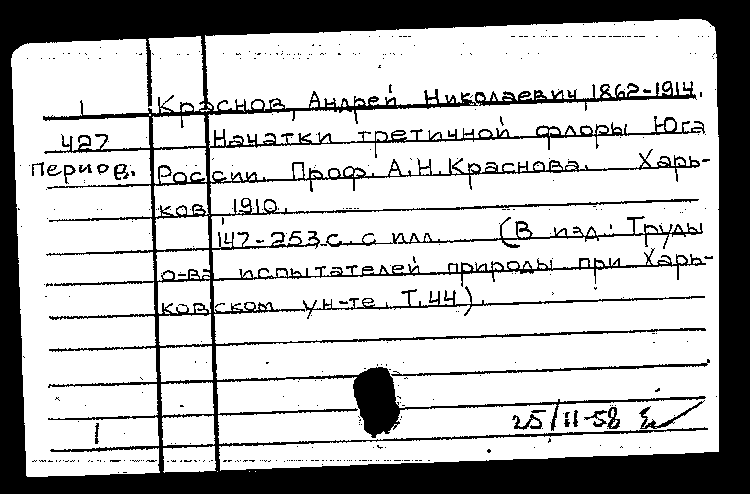 1 Краснов, Андрей Николаевич, 1862-1914.
427 Начатки третичной флоры Юга
период. России. Проф. А.Н.Краснова. Харь-
ков 1910.
147-253 с. с илл. (В изд.: Труды
о-ва испытателей природы при Харь-
ковском ун-те. Т.44).
1 25/II-58